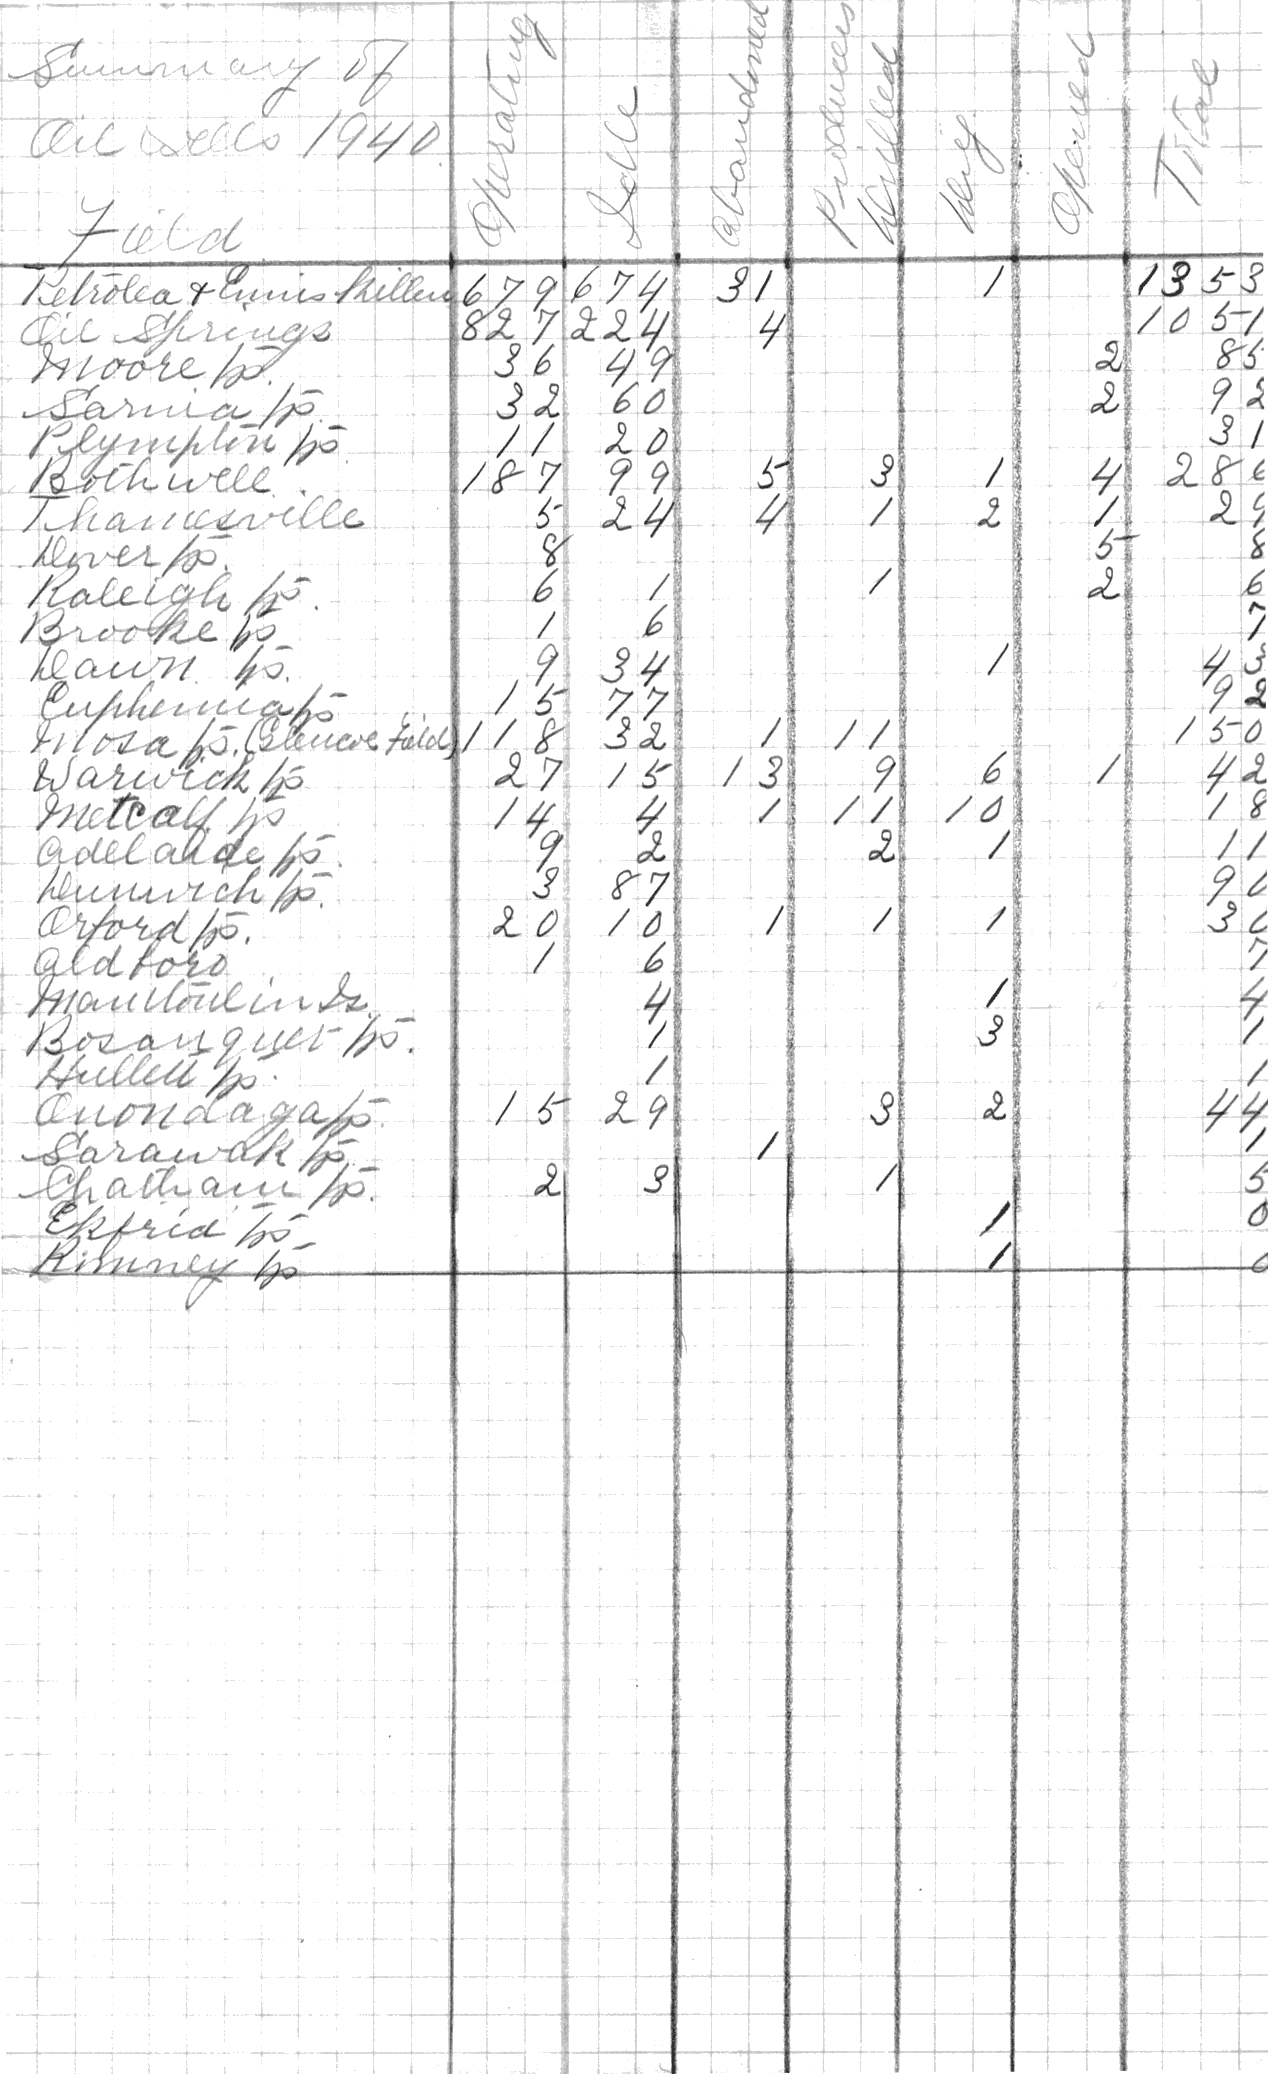 Summary of
Oil Wells 1940
Field Operating Idle Abandoned Producers Drilled Dry Opened Total
Petrolea & Enniskillen 679 674 31 1 1353
Oil Springs 827 224 4 1051
Moore tp. 36 49 2 85
Sarnia tp. 32 60 2 92
Plympton tp. 11 20 31
Bothwell 187 99 5 3 1 4 286
Thamesville 5 24 4 1 2 1 29
Dover tp. 8 5 8
Raleigh tp. 6 1 1 2 6
Brooke tp 1 6 7
Dawn tp. 9 34 1 43
Euphemia tp 15 77 92
Mosa tp. (Glencoe Field) 118 32 1 11 150
Warwick tp 27 15 13 9 6 1 42
Metcalf tp 14 4 1 11 10 18
Adelaide tp. 9 2 2 1 11
Dunwich tp. 3 87 90
Orford tp. 20 10 1 1 1 30
Aldboro 1 6 7
Manitoulin Is. 4 1 4
Bosanquet tp. 1 3 1
Hullett tp. 1 1
Onondaga tp. 15 29 3 2 44
Sarawak tp. 1 1
Chatham tp. 2 3 1 5
Ekfrid tp 1 0
Romney tp 1 0